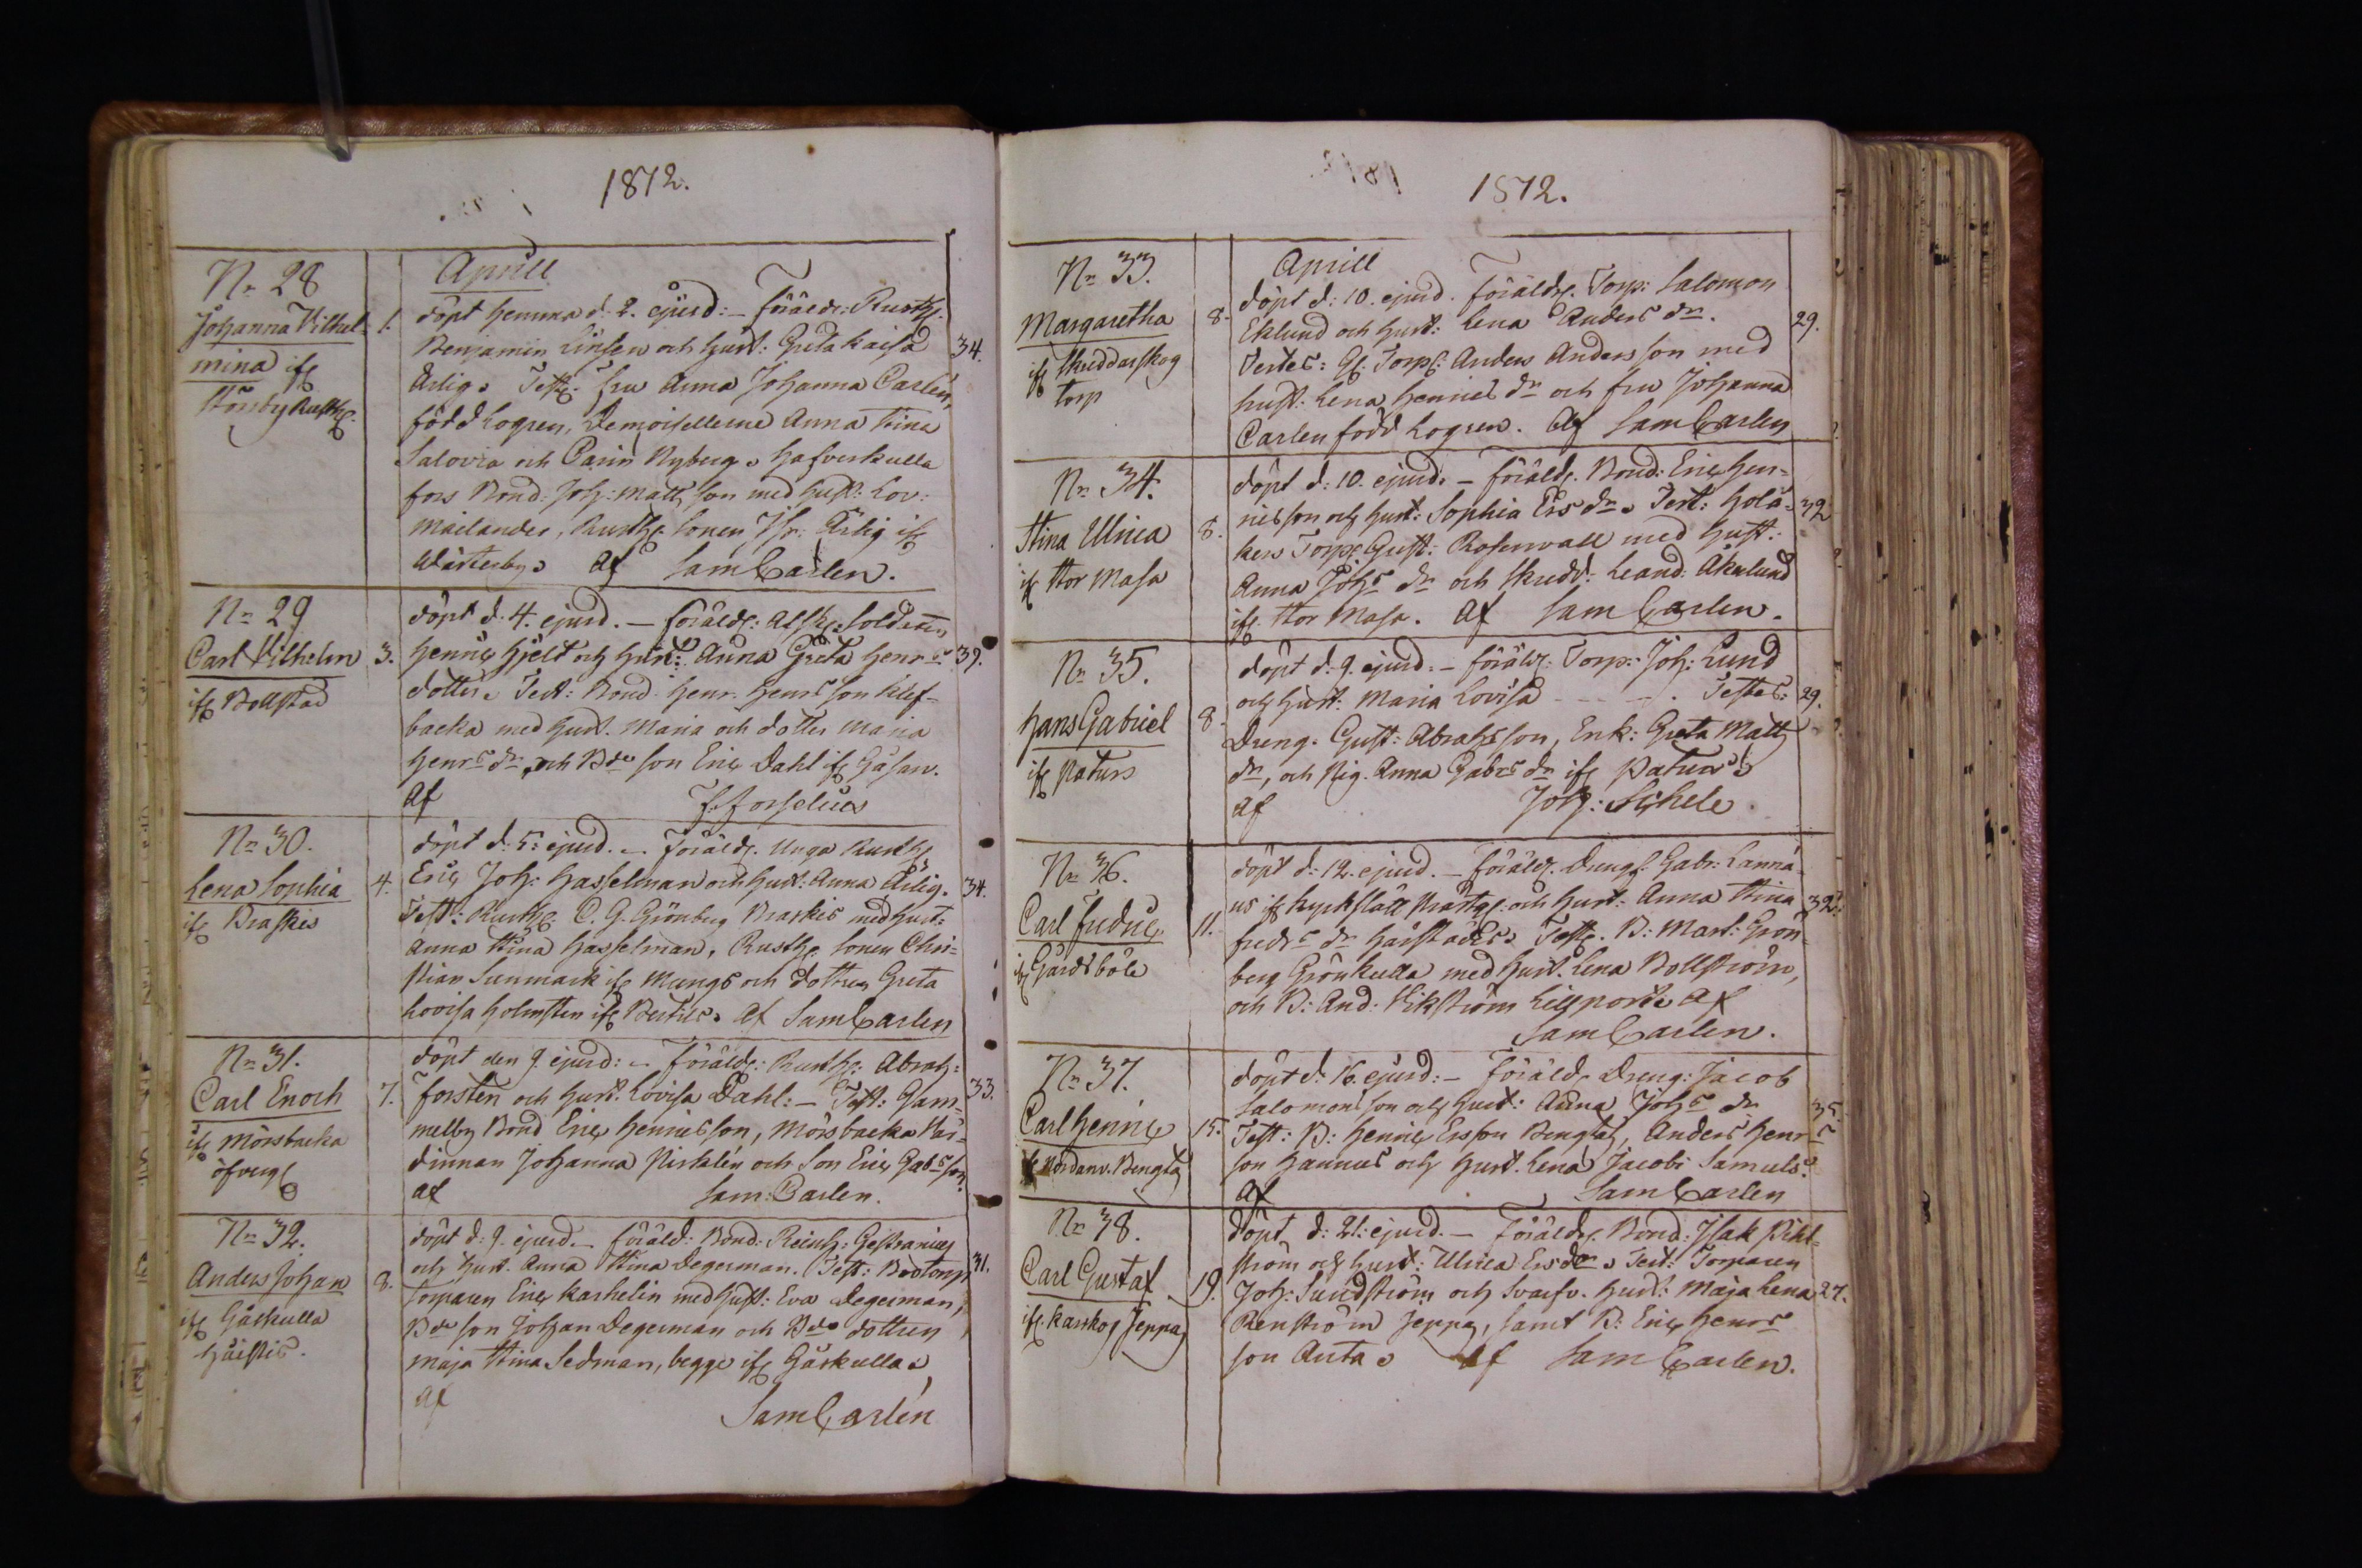 1812.
Aprill
Nr 28
Johanna Vilhel-
mina ifr
Störsby Rusth.
1.
döpt hemma d. 2. ejusd: – Föräldr: Rusth.
Benjamin Linsen och hust: Greta Caisa
Ärlig. Test: Fru Anna Johanna Carlén,
född Logren, Demoisellerne Anna Stina
Salovia och Carin Nyberg. Hafverkulla
fors Bond: Joh: Matts son med hust: Lov:
Mailander, Rusth. Sonen Ärlig ifr
Västerby. Af Sam Carlen.
34.
Nr 29
Carl Vilhelm
ifr Bollstad
3.
döpt d. 4. ejusd. – Föräldr: Afsk. Soldaten
Henric Hjelt och hust: Anna Greta Henrs
dotter. Test: Bond. Henr. Henrs son Klef-
backa med hust. Maria och dotter Maria
Henrs dr och Bde son Eric Dahl ifr Gåsan.
Af F. Forselius
39.
Nr 30.
Lena Sophia
ifr Braskis
4.
döpt d. 5: ejusd. – Föräldr. Unga Rusth.
Eric Joh: Hasselman och hust: Anna Ärlig.
Test: Rusth. C. G. Grönberg Braskis med hust:
Anna Stina Hasselman, Rusth. Sonen Chri-
stian Sunmark ifr Mungs och dottren Greta
Lovisa Holmsten ifr Bertils. Af Sam Carlen
34.
Nr 31.
Carl Enoch
ifr Mörsbacka
öfverg
7.
döpt den 9 ejusd: – Föräldr: Rusth: Abrah:
Forsten och hust. Lovisa Dahl: – Test: Gam-
melby Bond Eric Henrics son, Mörsbacka Vär-
dinnan Johanna Nisklén och Son Eric Gabrs son.
af Sam: Carlen.
33.
Nr 32.
Anders Johan
ifr Gåskulla
8.
döpt d. 9. ejusd. – Föräld: Bond: Reinh: Gestranius
och hust. Anna Stina Degerman. Test: Bootorp
torparen Eric Karhelin med hust: Eva Degerman,
Bde son Johan Degerman och Bde dottren
Maja Stina Sedman, begge ifr Gåskulla,
af Sam Carlén
31.
1812.
Aprill
Nr 33.
Margaretha
ifr Skreddarskog
torp
8.
döpt d: 10. ejusd. Föräldr. Torp: Salomon
Eklund och hust: Lena Anders dr.
Testes: Gl. Torp: Anders Anders son med
hust: Lena Henrics dr och fru Johanna
Carlen född Logren. Af Sam Carlen
29.
Nr 34.
Stina Ulrica
ifr Stor Masa
8.
döpt d: 10. ejusd. – Föräldr. Bond: Eric Hen-
rics son och hust: Sophia Ers dr. Test: Holå-
kers Torp. Gust: Rosenvall med hust:
Anna Johs dr och Skredd: Leand: Åkerlund
ifr Stor Masa. Af Sam Carlen.
32
Nr 35.
Hans Gabriel
ifr Paturs
8.
döpt d. 9. ejusd. – Föräldr: Torp: Joh: Lund
och hust: Maria Lovisa - - - -. Testes:
Dreng. Gust: Abrahs son, Enk: Greta Matts
dr, och Pig. Anna Gabrs dr ifr Paturs
af Joh: Schele
29.
Nr 36.
Carl Fredric
ifr Gårdsböle
11.
döpt d: 12. ejusd. – Föräldr. Drengs Gabr: Lannä-
us ifr Kyrkslätt Prästg. och hust: Anna Stina
Fredrs dr Test. B: Mart: Grön-
berg Grönkulla med hust. Lena Bollström,
och B: And: Vikström Lillports. Af
Sam Carlen.
32.
Nr 37.
Carl Henric
ifr Nordanv. Bengts
15.
döpt d: 16. ejusd: – Föräldr. Dreng: Jacob
Salomons son och hust: Anna Johs dr
Test: B: Henric Ersson Bengts, Anders Henrs
son Hannus och hust. Lena Jacobs Samuels.
Af Sam Carlen
35.
Nr 38.
Carl Gustaf
ifr Karskog Jeppas
19.
döpt d: 21: ejusd. – Föräldr. Bond: Isak Pihl-
ström och hust: Ulrica Ers dr. Test: Torparen
Joh: Sundström och Svarfv. hust: Maja Lena
Renström Jeppas, samt B: Eric Henrs
son Anta. Af Sam Carlen.
27.